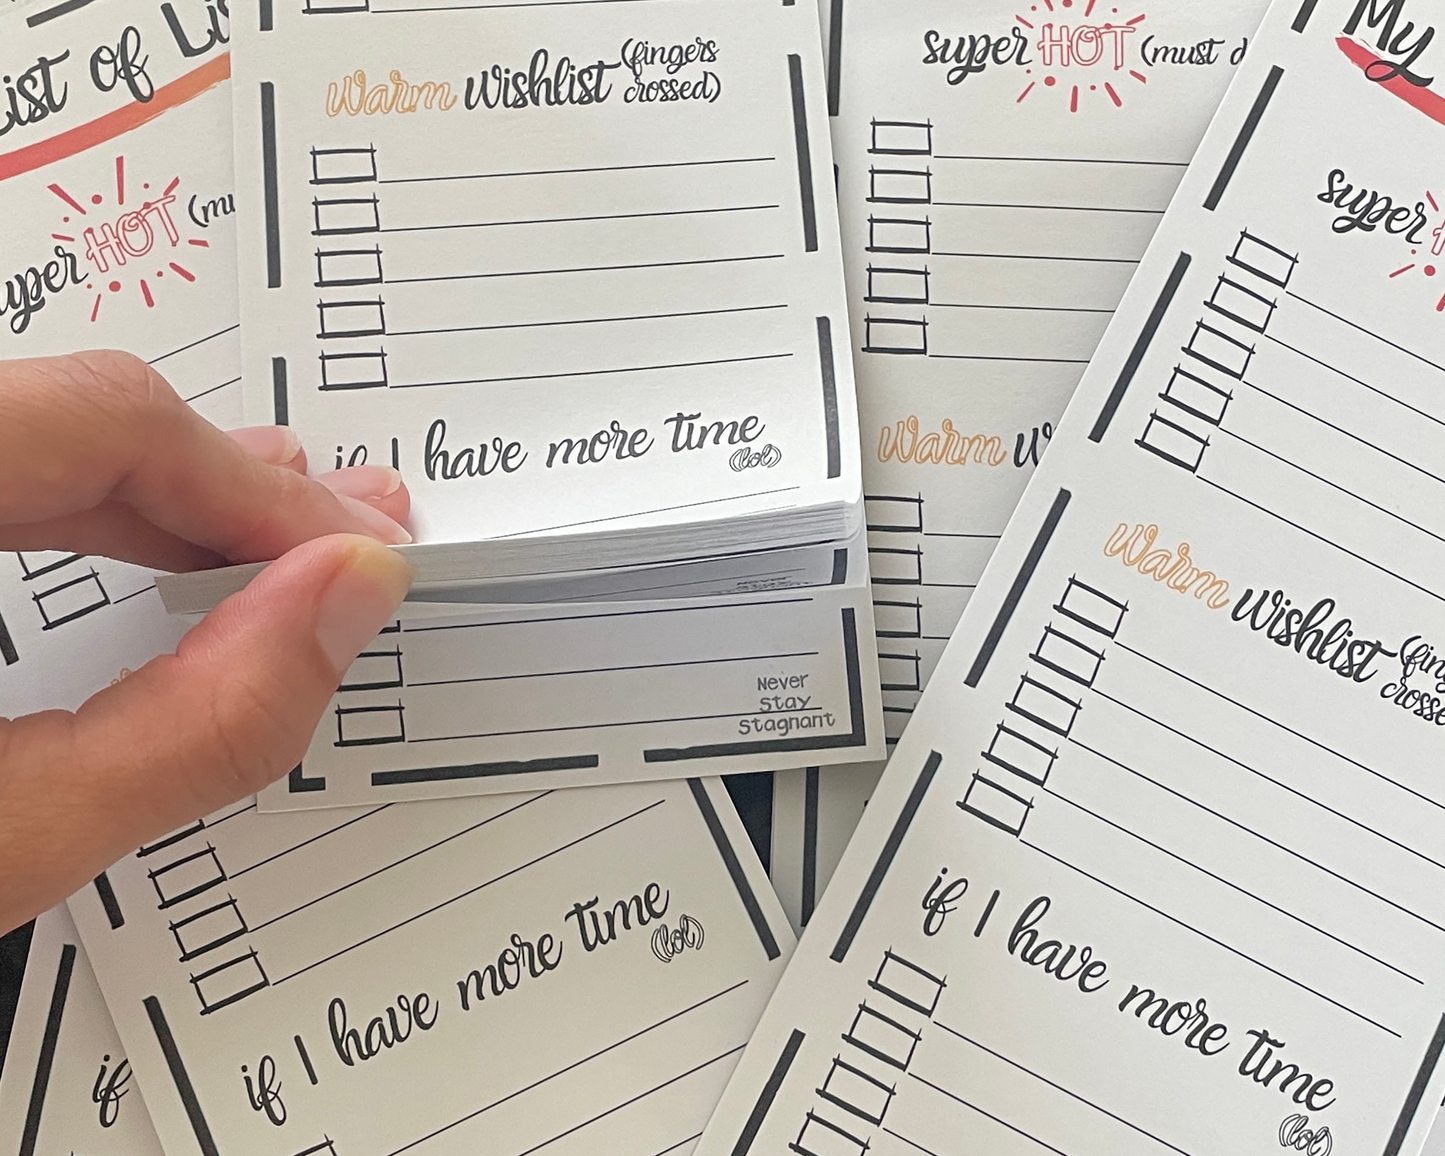 List of Li
super HOT (mu
Warm wishlist (fingers
crossed)
if I have more time
(lol)
Never
Stay
Stagnant
super HOT (must d
Warm w
My
super
Warm wishlist (fing
crosse
if I have more time
(lol)
if I have more time
(lol)
if